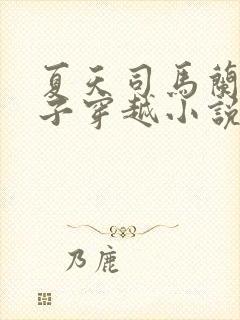 夏天司馬蘭
子穿越小說
乃鹿